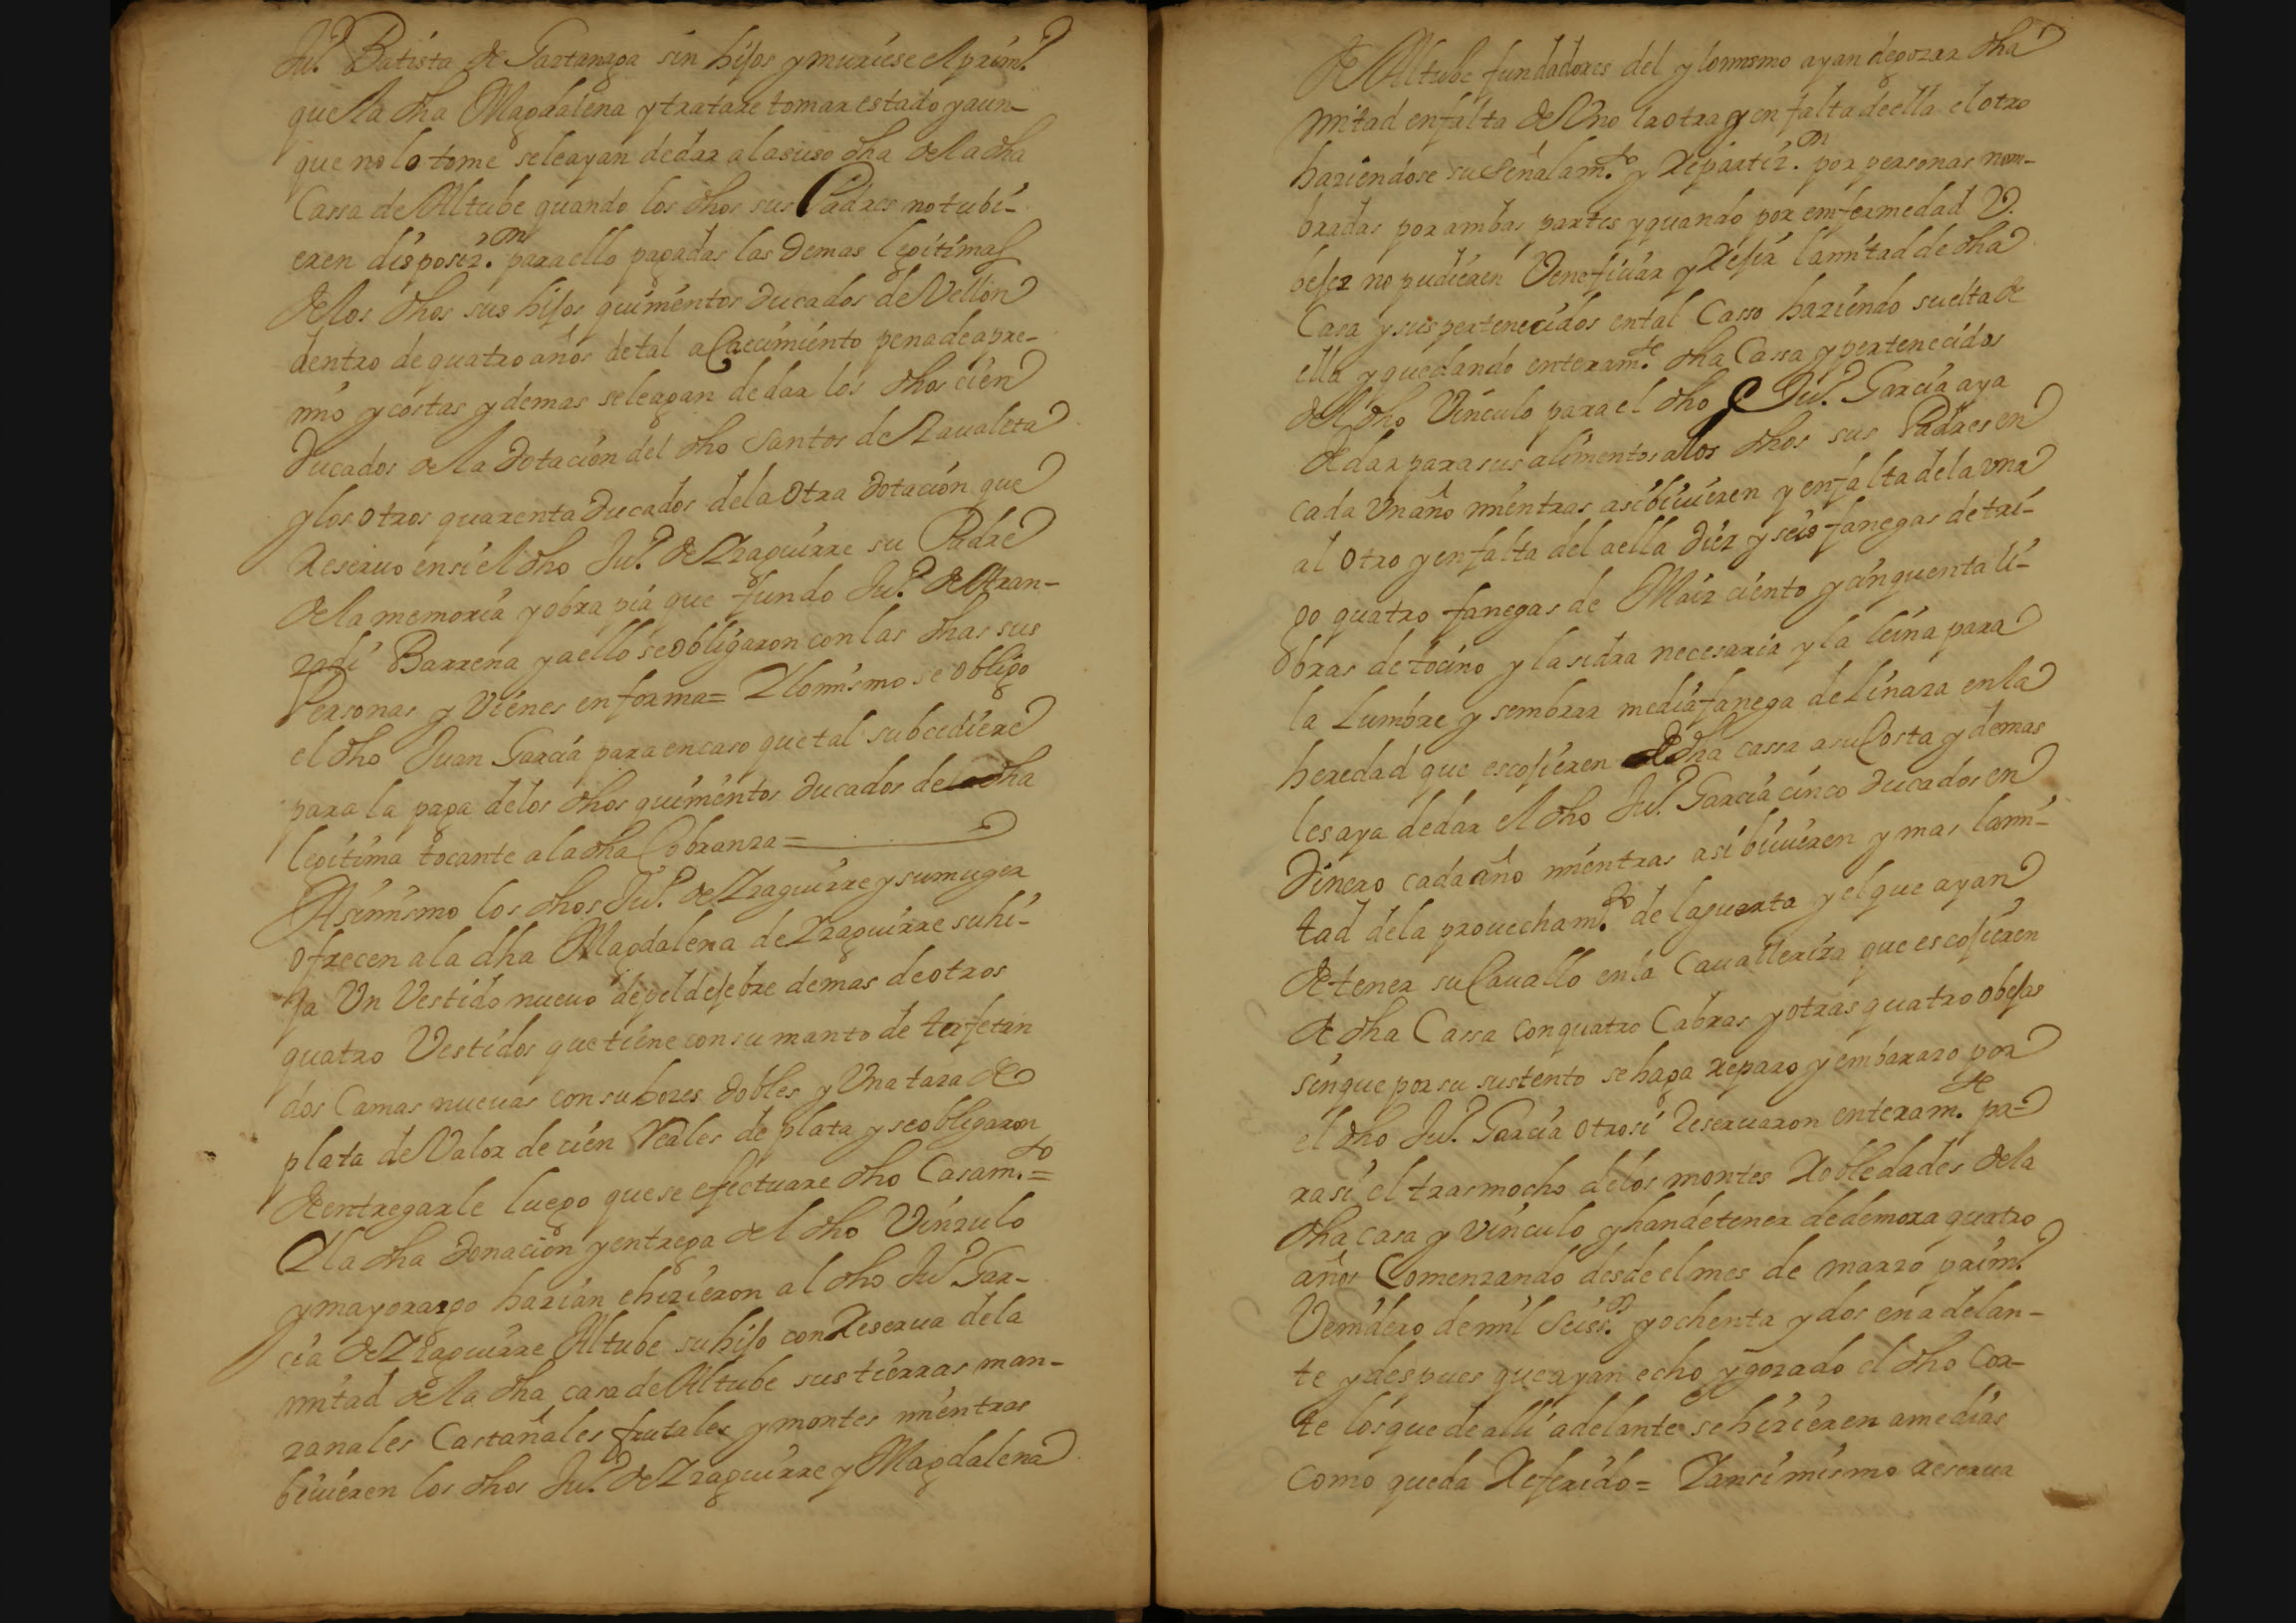 Ju.º Batista de Gastanaga sin hijos y muriese el prim.º
que la dha Magdalena y tratare tomar estado y aun-
que no lo tome se le ayan de dar a la suso dha de la dha
Cassa de Altube quando los dhos sus Padres no tubi-
eren disposiz.on para ello pagadas las demas legitimas
de los dhos sus hijos quinientos ducados de Vellon
dentro de quatro años de tal aCaecimiento pena de apre-
mio y costas y demas se le ayan de dar los dhos cien
ducados de la dotacion del dho Santos de Zaualeta
y los otros quarenta ducados de la Otra dotacion que
Reseruo en si el dho Ju.º de Yzaguirre su Padre
de la memoria y obra pia que fundo Ju.º de Aran-
zadi Barrena y a ello se obligaron con las dhas sus
Personas y Vienes en forma = Y lo mismo se obligo
el dho Juan Garcia para en caso que tal subcediere
para la paga de los dhos quinientos ducados de la dha
legitima tocante a la dha Cobranza =
Asimismo los dhos Ju.º de Yzaguirre y su muger
ofrecen a la dha Magdalena de Yzaguirre su hi-
ja Un Vestido nueuo de pel de febre demas de otros
quatro Vestidos que tiene con su manto de tafetan
dos Camas nueuas con sus dobles y Una taza de
plata de Valor de cien Reales de plata y se obligaron
de entregarle luego que se efectuare dho Casam.to =
Y la dha donacion y entrega del dho Vinculo
y mayorazgo hazian e hizieron al dho Ju.º Gar-
cia de Yzaguirre Altube su hijo con Reserua de la
mitad de la dha casa de Altube sus tierras man-
zanales Castañales frutales y montes mientras
biuieren los dhos Ju.º de Yzaguirre y Magdalena
de Altube fundadores del y lo mismo ayan de gozar dha
mitad en falta del Uno la otra y en falta de ella el otro
haziendose su señalam.to y Repartiz.on por personas nom-
bradas por ambas partes y quando por enfermedad V.
bejez no pudieren Veneficiar y Rejir la mitad de dha
Casa y sus pertenecidos en tal Casso haziendo suelta de
ella y quedando enteram.te dha Cassa y pertenecidos
del dho Vinculo para el dho Ju.º Garcia aya
de dar para sus alimentos a los dhos sus Padres en
cada Un año mientras asi biuieren y en falta de la una
al Otro y en falta del a ella diez y seis fanegas de tri-
go quatro fanegas de Maiz ciento y cinquenta li-
bras de tocino y la sidra necesaria y la leina para
la Lumbre y sembrar media fanega de linaza en la
heredad que escojieren de dha cassa a su Costa y demas
les aya de dar el dho Ju.º Garcia cinco ducados en
Dinero cada año mientras asi biuieren y mas la mi-
tad de la prouecham.to de la guerta y el que ayan
de tener su Cauallo en la Caualleriza que escojieren
de dha Cassa con quatro Cabras y otras quatro obejas
sin que por su sustento se haga Reparo y embarazo por
el dho Ju.º Garcia otrosi Reseruaron enteram.te pa-
ra si el trasmocho de los montes Robledades de la
dha casa y Vinculo y han de tener de demora quatro
años Comenzando desde el mes de marzo prim.º
Venidero de mil Seisc.s y ochenta y dos en adelan-
te y despues que ayan echo y gozado el dho Cor-
te los que de alli adelante se hizieren a medias
como queda Referido = Y ansi mismo reserua